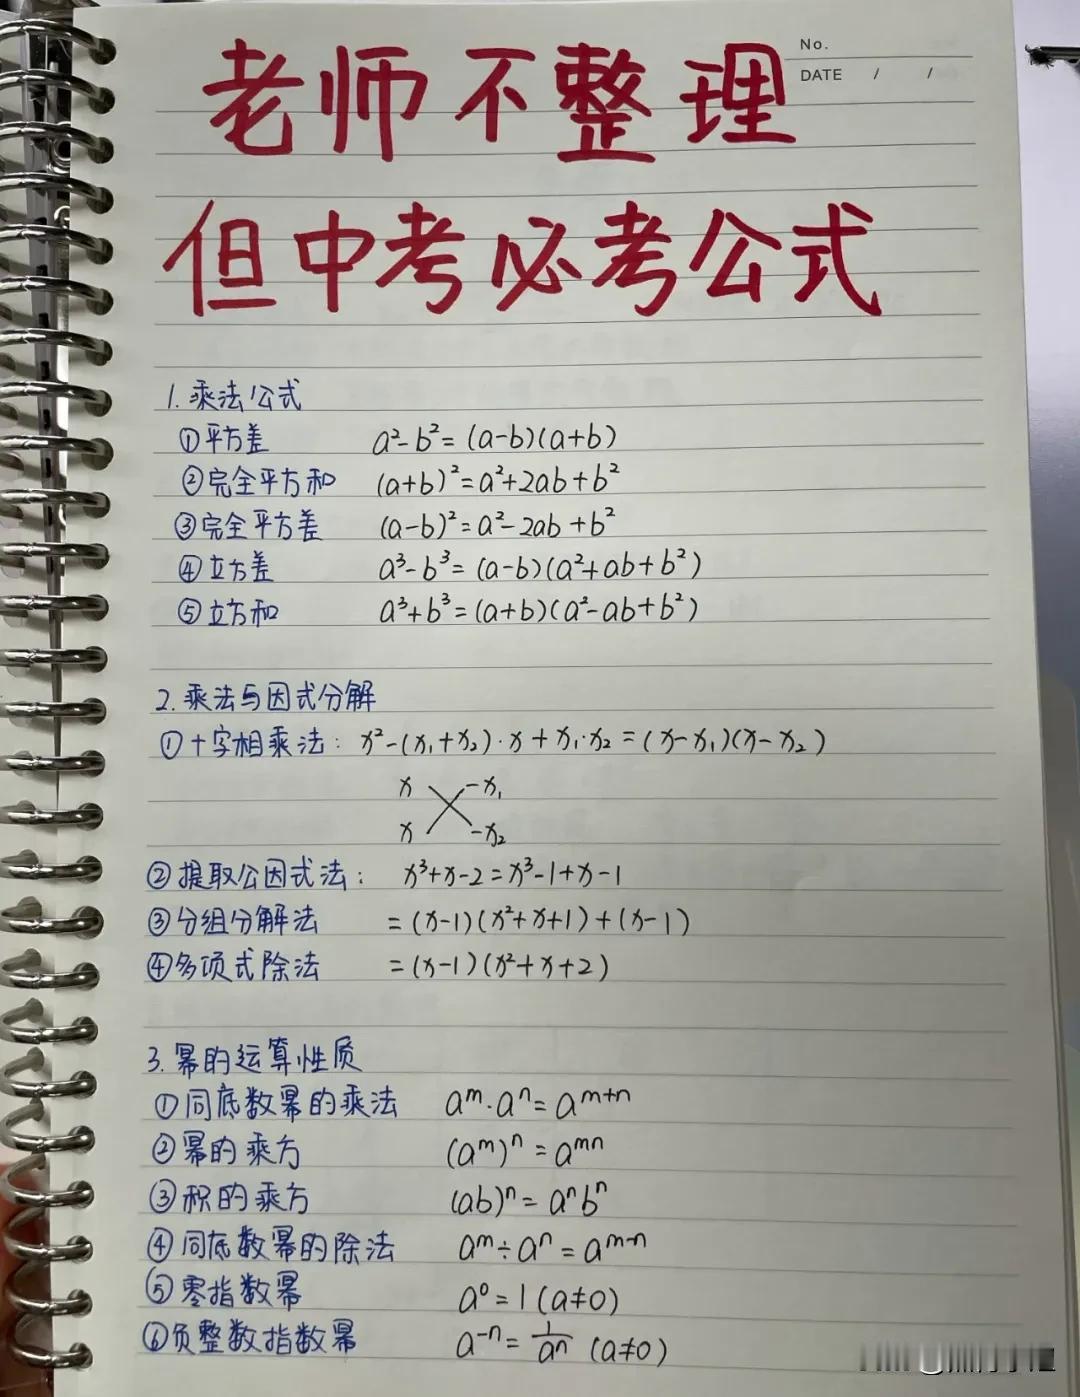 No.
DATE / /
老师不整理
但中考必考公式
1. 乘法公式
①平方差 a²-b²=(a-b)(a+b)
②完全平方和 (a+b)²=a²+2ab+b²
③完全平方差 (a-b)²=a²-2ab+b²
④立方差 a³-b³=(a-b)(a²+ab+b²)
⑤立方和 a³+b³=(a+b)(a²-ab+b²)
2. 乘法与因式分解
①十字相乘法: x²-(x₁+x₂)·x+x₁·x₂=(x-x₁)(x-x₂)
x -x₁
x -x₂
②提取公因式法: x³+x-2=x³-1+x-1
③分组分解法 =(x-1)(x²+x+1)+(x-1)
④多项式除法 =(x-1)(x²+x+2)
3. 幂的运算性质
①同底数幂的乘法 aᵐ·aⁿ=aᵐ⁺ⁿ
②幂的乘方 (aᵐ)ⁿ=aᵐⁿ
③积的乘方 (ab)ⁿ=aⁿbⁿ
④同底数幂的除法 aᵐ÷aⁿ=aᵐ⁻ⁿ
⑤零指数幂 a⁰=1(a≠0)
⑥负整数指数幂 a⁻ⁿ=1/aⁿ (a≠0)